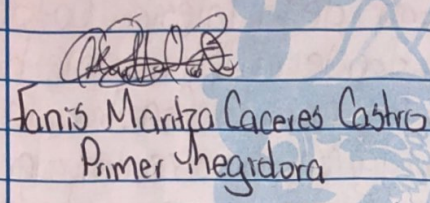 Janis Maritza Caceres Castro
Primer rhegidora